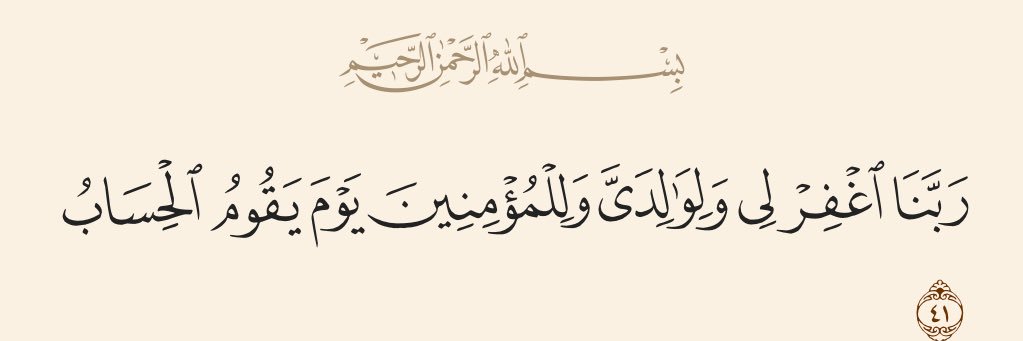 بِسْمِ ٱللَّهِ ٱلرَّحْمَٰنِ ٱلرَّحِيمِ
رَبَّنَا ٱغْفِرْ لِى وَلِوَٰلِدَىَّ وَلِلْمُؤْمِنِينَ يَوْمَ يَقُومُ ٱلْحِسَابُ
٤١